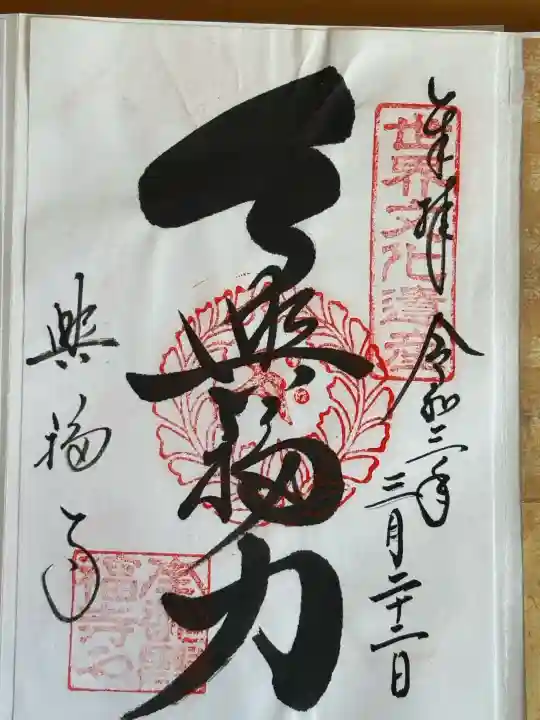 奉拝 令和三年
三月二十二日
世界文化遺産
令興福力
興福寺